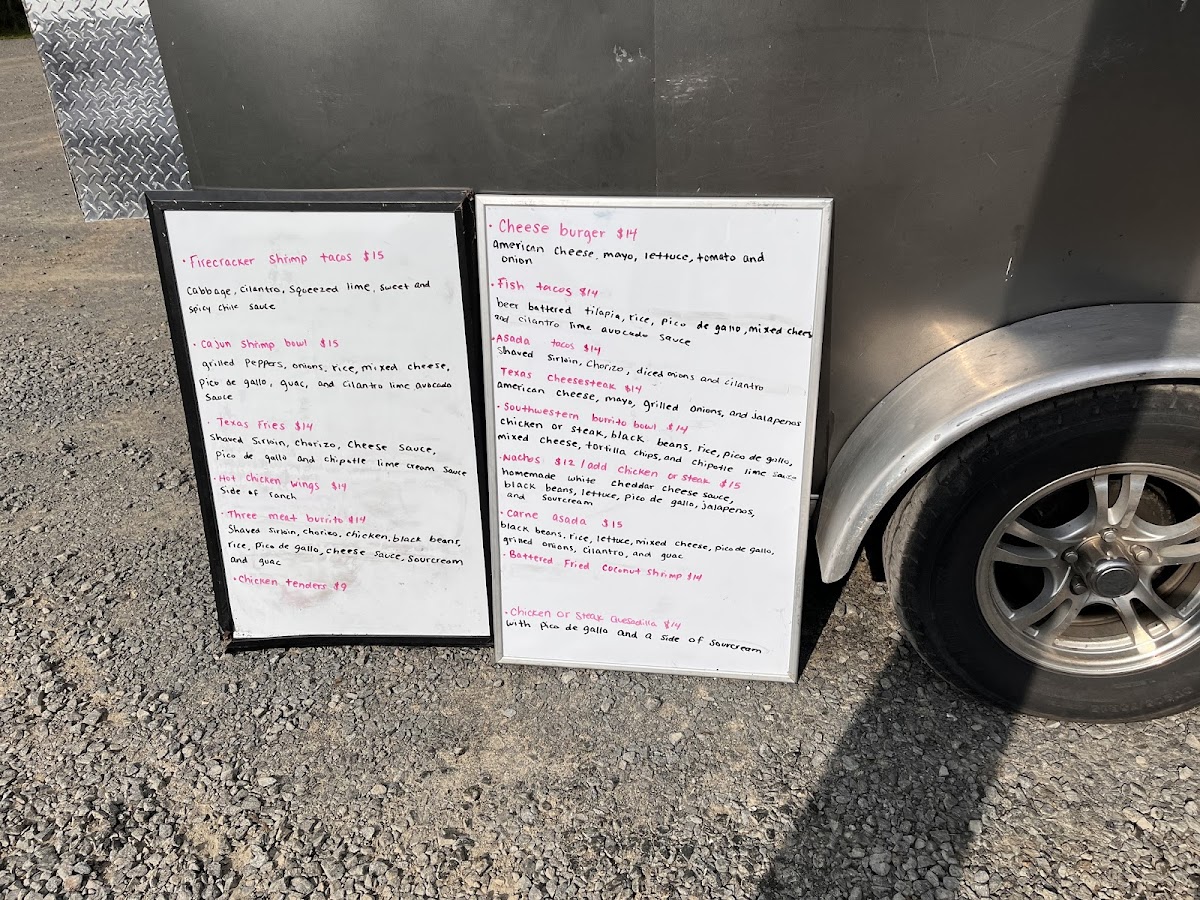 · Firecracker Shrimp tacos $15
Cabbage, cilantro, Squeezed lime, sweet and
spicy chile sauce
· Cajun shrimp bowl $15
grilled Peppers, onions, rice, mixed cheese,
Pico de gallo, guac, and cilantro lime avocado
Sauce
· Texas Fries $14
Shaved Sirloin, chorizo, Cheese sauce,
Pico de gallo and chipotle lime cream Sauce
· Hot Chicken wings $14
Side of ranch
· Three meat burrito $14
Shaved Sirloin, chorizo, chicken, black beans,
rice, pico de gallo, cheese sauce, sourcream
and guac
· Chicken tenders $9
· Cheese burger $14
american cheese, mayo, lettuce, tomato and
onion
· Fish tacos $14
beer battered tilapia, rice, pico de gallo, mixed chees
and cilantro lime avocado sauce
· Asada tacos $14
Shaved Sirloin, Chorizo, diced onions and cilantro
Texas Cheesesteak $14
american cheese, mayo, grilled onions, and Jalapenos
· Southwestern burrito bowl $14
chicken or steak, black beans, rice, pico de gallo,
mixed cheese, tortilla chips, and chipotle lime sauce
· Nachos $12 / add Chicken or steak $15
homemade white cheddar cheese sauce,
black beans, lettuce, Pico de gallo, Jalapenos,
and sourcream
· Carne asada $15
black beans, rice, lettuce, mixed cheese, pico de gallo,
grilled onions, Cilantro, and guac
· Battered Fried Coconut Shrimp $14
· Chicken or Steak Quesadilla $14
with Pico de gallo and a side of Sourcream